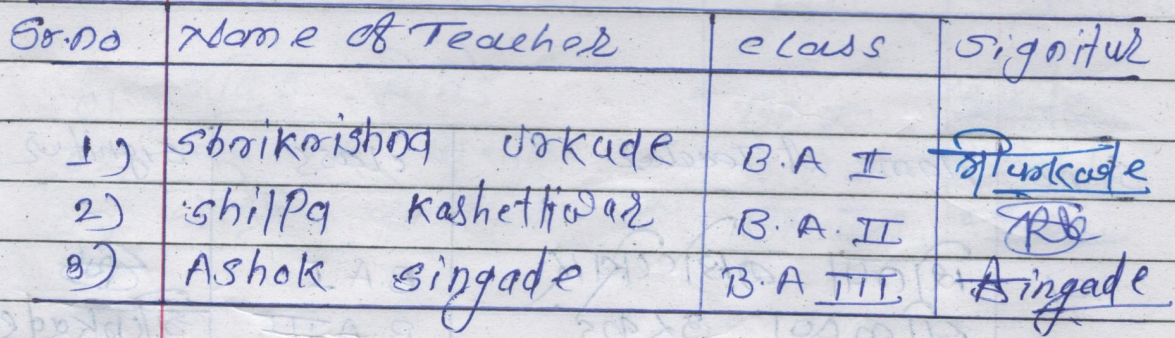 Sr.no Name of Teacher class Signitur
1) Shrikrishna Urkude B.A II Urkude
2) Shilpa Kashettiwar B.A. II
3) Ashok Singade B.A III Aingade